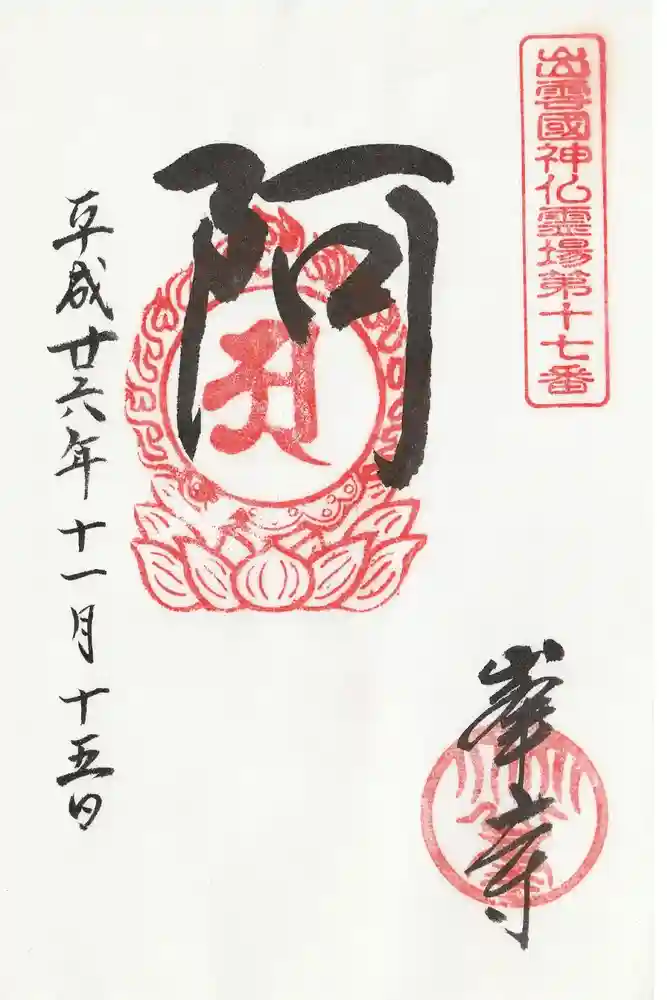 出雲國神仏霊場第十七番
阿
峯寺
平成廿六年十一月十五日